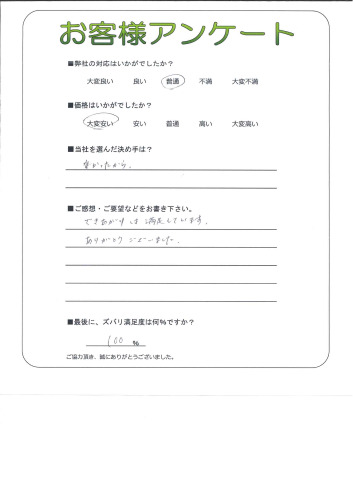 お客様アンケート
■弊社の対応はいかがでしたか?
大変良い 良い 普通 不満 大変不満
■価格はいかがでしたか?
大変安い 安い 普通 高い 大変高い
■当社を選んだ決め手は?
安かったから.
■ご感想・ご要望などをお書き下さい。
できあがりは満足しています.
ありがとうございました.
■最後に、ズバリ満足度は何%ですか?
100 %
ご協力頂き、誠にありがとうございました。